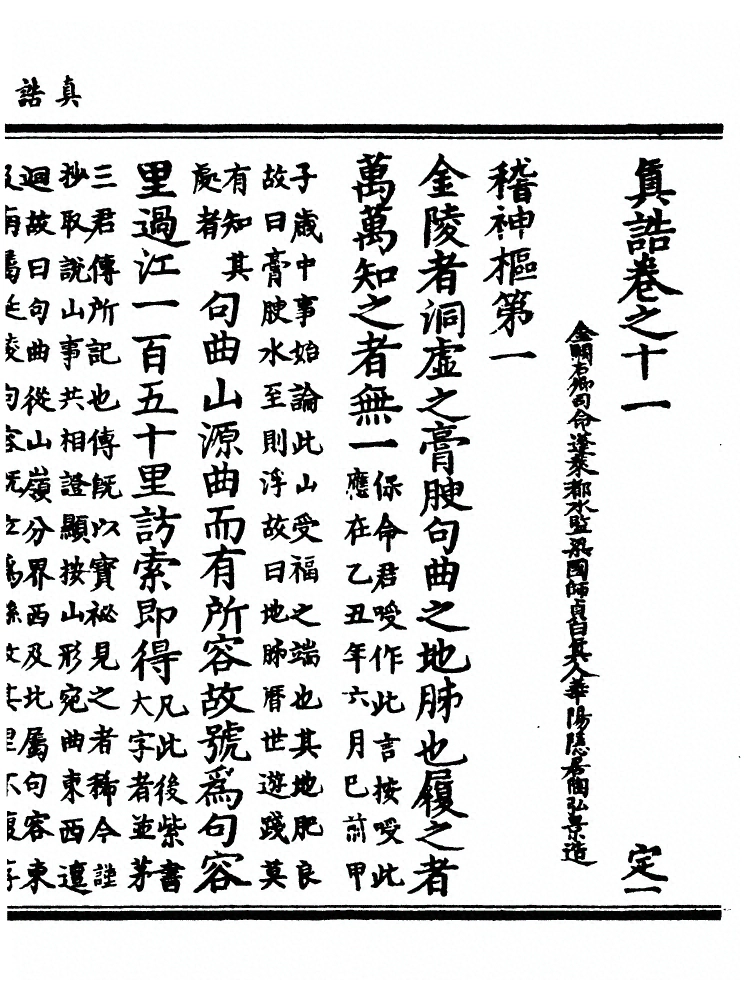 真誥
真誥卷之十一　定一
金闕右卿司命蓬萊都水監梁國師貞白真人華陽隱居陶弘景造
稽神樞第一
金陵者洞虛之膏腴句曲之地肺也履之者
萬萬知之者無一
保命君授作此言按授此
應在乙丑年六月已前甲
子歲中事始論此山受福之端也其地肥良
故曰膏腴水至則浮故曰地肺曆世遊踐莫
有知其
處者
句曲山源曲而有所容故號爲句容
里過江一百五十里訪索即得
凡此後紫書
大字者並茅
三君傳所記也傳旣以寶祕見之者稀今謹
抄取說山事共相證顯按山形宛曲東西邅
迴故曰句曲從山嶺分界西及北屬句容東